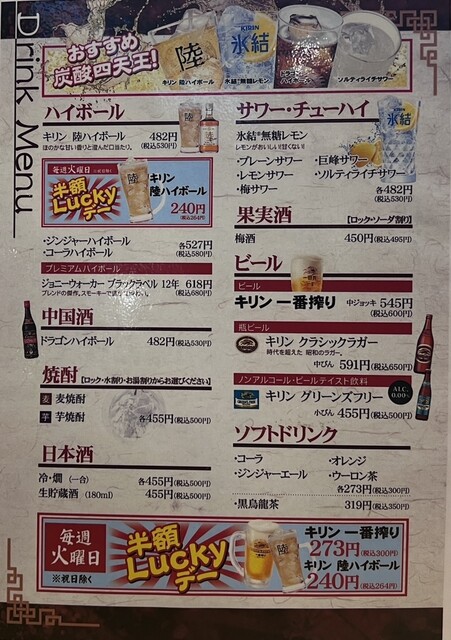 Drink Menu
おすすめ
炭酸四天王!
陸
キリン 陸ハイボール
KIRIN
氷結
氷結®無糖レモン
ドラゴン
ハイボール
ソルティライチサワー
ハイボール
キリン 陸ハイボール 482円
(税込530円)
ほのかな甘い香りと澄んだ口当たり。
毎週火曜日
半額
Luckyデー
キリン
陸ハイボール
240円
(税込264円)
・ジンジャーハイボール 各527円
・コーラハイボール (税込580円)
プレミアムハイボール
ジョニーウォーカー ブラックラベル 12年 618円
(税込680円)
中国酒
ドラゴンハイボール 482円(税込530円)
焼酎【ロック・水割り・お湯割りからお選びください】
麦 麦焼酎
芋 芋焼酎 各455円(税込500円)
日本酒
冷・燗 (一合) 各455円(税込500円)
生貯蔵酒 (180ml) 455円(税込500円)
サワー・チューハイ
氷結®無糖レモン
レモンがおいしい!甘くない!
・プレーンサワー ・巨峰サワー
・レモンサワー ・ソルティライチサワー
・梅サワー 各482円
(税込530円)
氷結
果実酒 【ロック・ソーダ割り】
梅酒 450円(税込495円)
ビール
ビール
キリン 一番搾り 中ジョッキ 545円
(税込600円)
瓶ビール
キリン クラシックラガー
時代を超えた 昭和のラガー。
中びん 591円(税込650円)
ノンアルコール・ビールテイスト飲料
ALC.
0.00%
キリン グリーンズフリー
小びん 455円(税込500円)
ソフトドリンク
・コーラ ・オレンジ
・ジンジャーエール ・ウーロン茶
各273円(税込300円)
・黒烏龍茶 319円(税込350円)
毎週
火曜日
※祝日除く
半額
Lucky
デー
陸
キリン 一番搾り
273円(税込300円)
キリン 陸ハイボール
240円(税込264円)